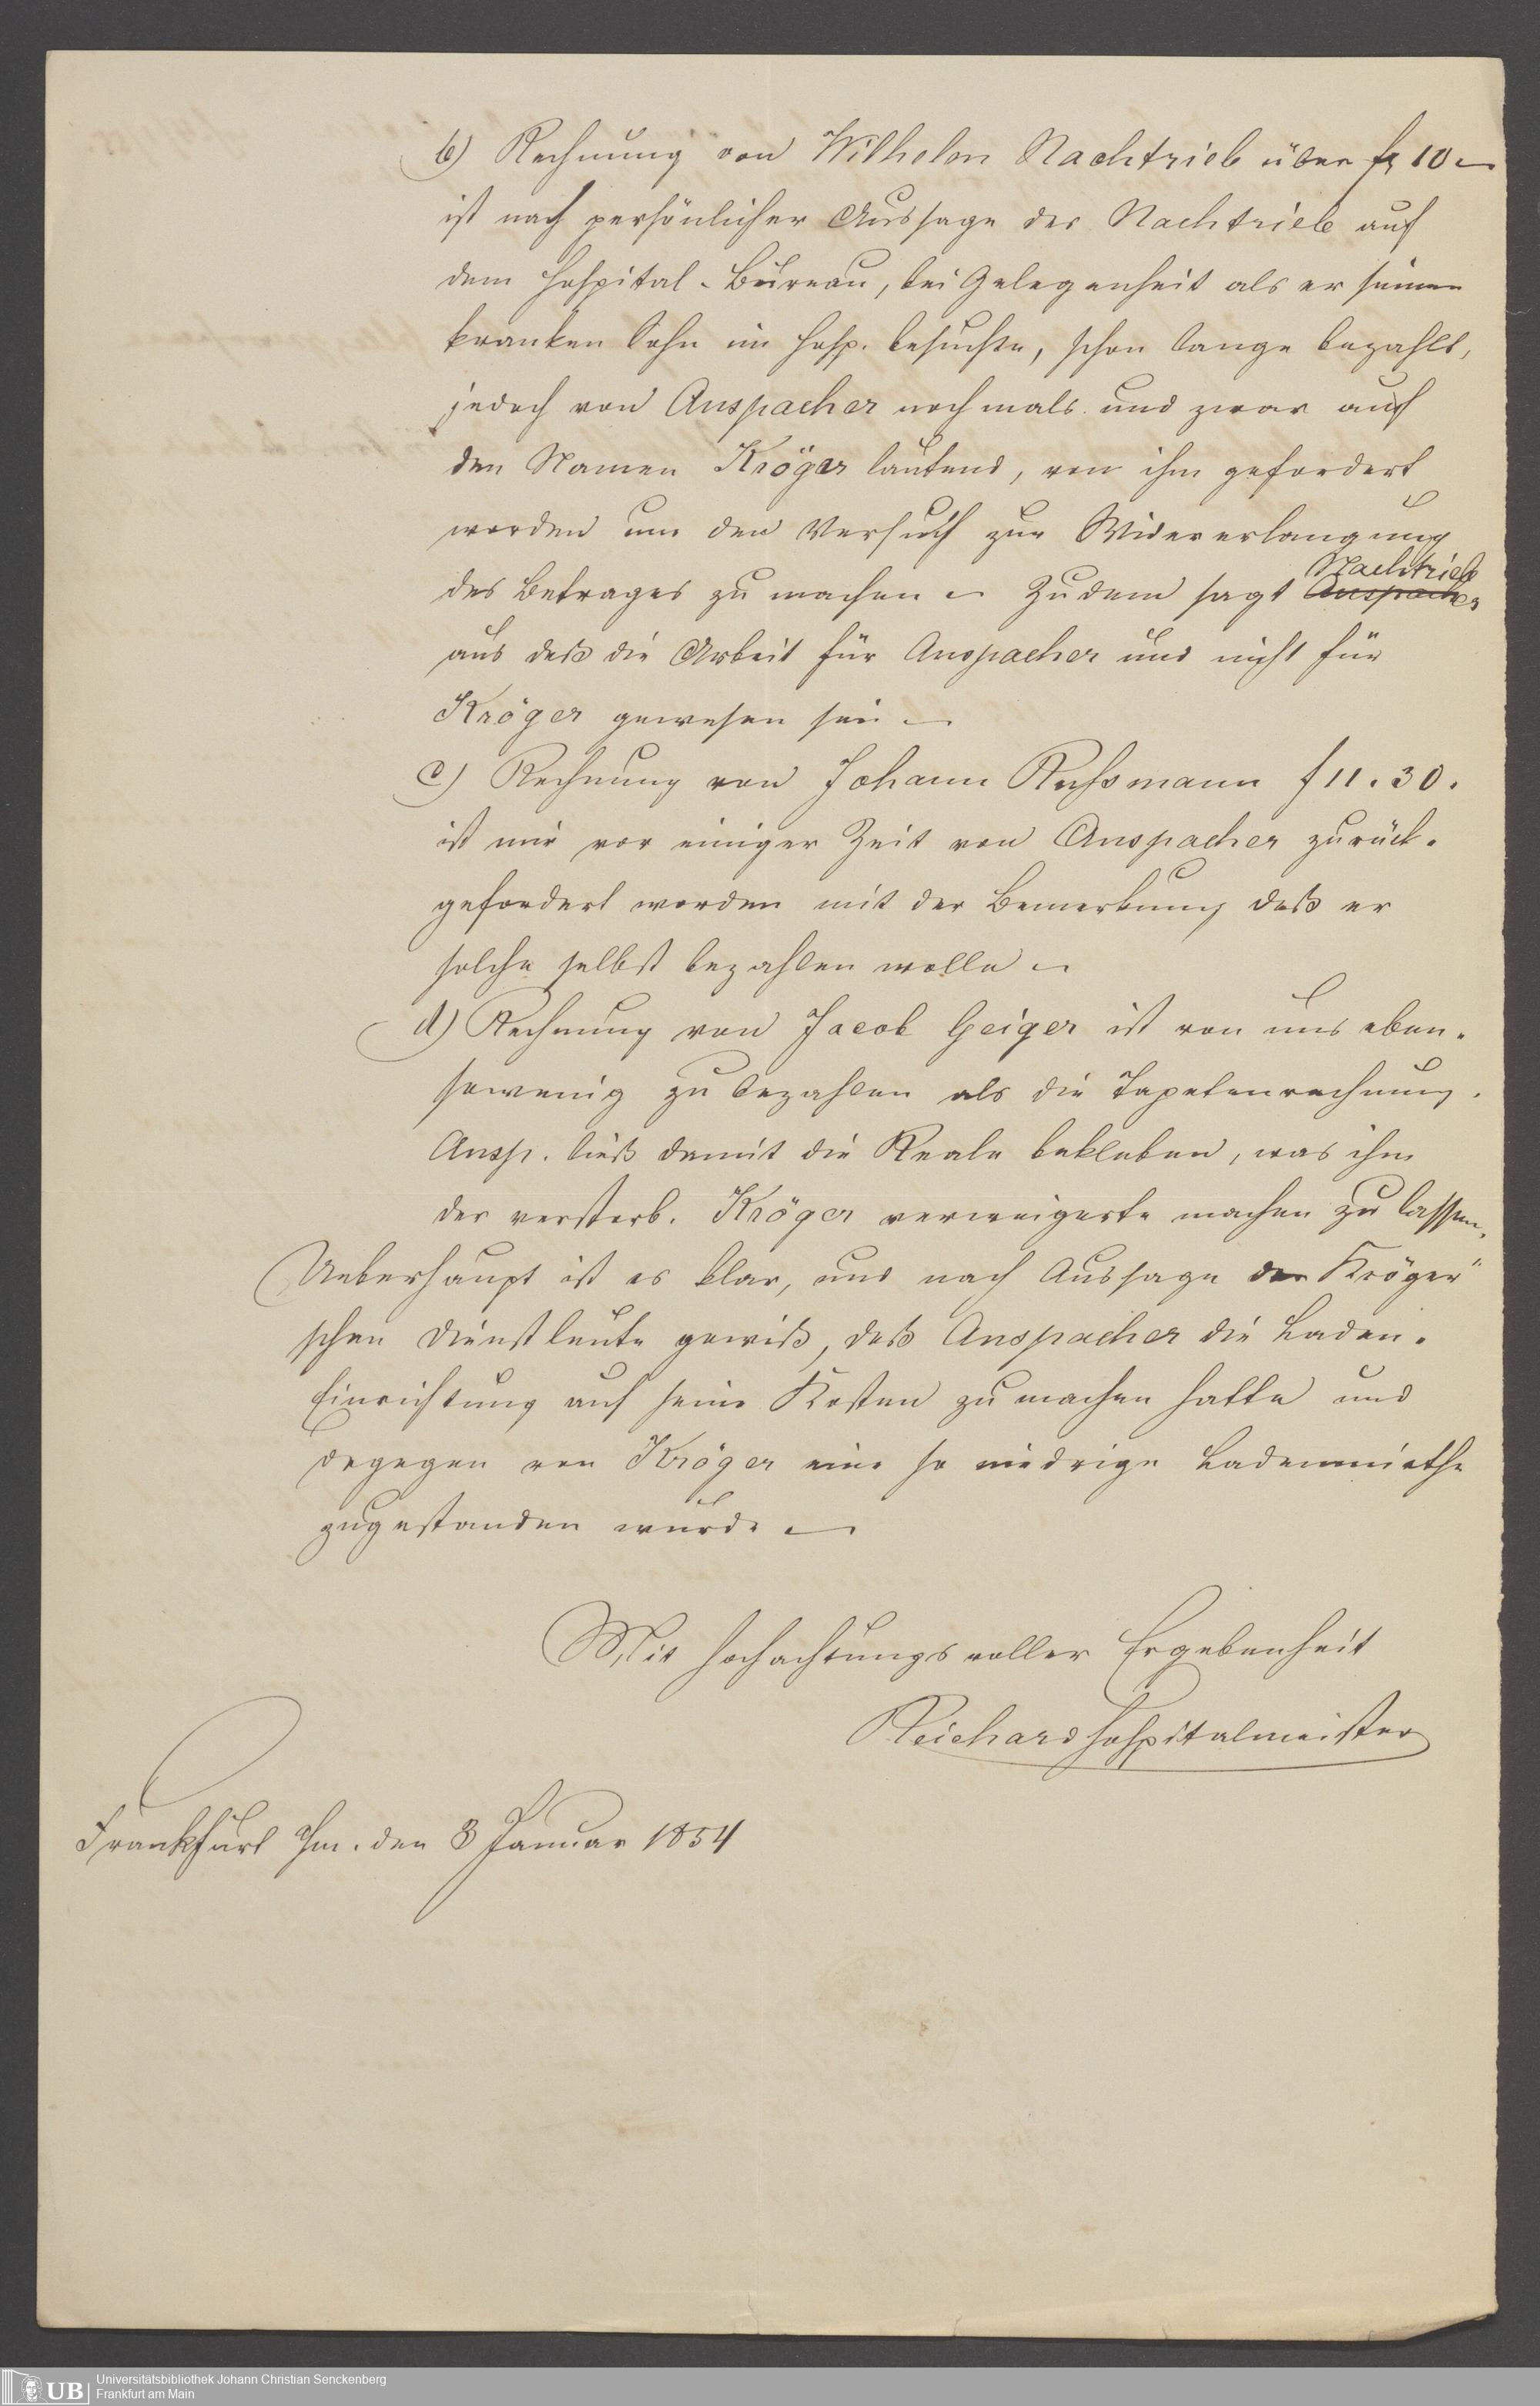 b) Rechnung von Wilhelm Nachtrieb über f 10 –
ist nach persönlicher Aussage des Nachtrieb auf
dem Hospital-Büreau, bei Gelegenheit als er seinen
kranken Sohn im Hosp. besuchte, schon lange bezahlt,
jedoch von Anspacher nochmals und zwar auf
den Namen Kröger lautend, von ihm gefordert
worden um den Versuch zur Widererlangung
des Betrages zu machen – Zudem sagt Nachtrieb
Anspacher
aus daß die Arbeit für Anspacher und nicht für
Kröger gewesen sei –
c) Rechnung von Johann Rußmann f 11.30.
ist mir vor einiger Zeit von Anspacher zurück-
gefordert worden mit der Bemerkung daß er
solche selbst bezahlen wolle –
d) Rechnung von Jacob Geiger ist von uns eben-
sowenig zu bezahlen als die Tapetenrechnung.
Ansp. ließ damit die Reale bekleben, was ihm
der verstorb. Kröger verweigerte machen zu lassen.
Ueberhaupt ist es klar, und nach Aussage der Kröger"
schen Dienstleute gewiß, daß Anspacher die Laden-
Einrichtung auf seine Kosten zu machen hatte und
dagegen von Kröger eine so niedrige Ladenmiethe
zugestanden wurde –
Mit hochachtungsvoller Ergebenheit
Reichard Hospitalmeister
Frankfurt a/m. den 8 Januar 1854
UB
Universitätsbibliothek Johann Christian Senckenberg
Frankfurt am Main